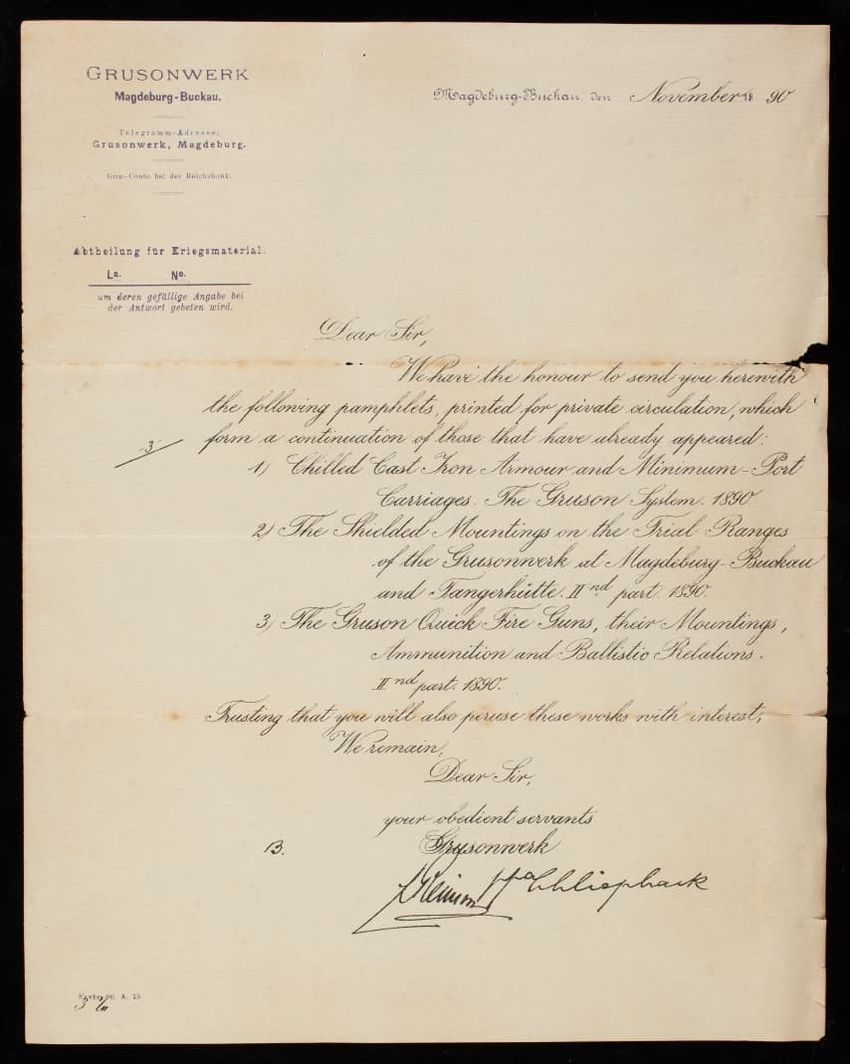 GRUSONWERK
Magdeburg-Buckau.
Magdeburg-Buckau den November 18 90
Telegramm-Adresse:
Grusonwerk, Magdeburg.
Giro-Conto bei der Reichsbank.
Abtheilung für Kriegsmaterial.
La. No.
um deren gefällige Angabe bei
der Antwort gebeten wird.
Dear Sir,
We have the honour to send you herewith
the following pamphlets, printed for private circulation, which
3
form a continuation of those that have already appeared:
1) Chilled Cast Iron Armour and Minimum-Port
Carriages. The Gruson System. 1890.
2) The Shielded Mountings on the Trial Ranges
of the Grusonwerk at Magdeburg-Buckau
and Tangerhütte. IInd part. 1890.
3) The Gruson Quick Fire Guns, their Mountings,
Ammunition and Ballistic Relations.
IInd part. 1890.
Trusting that you will also peruse these works with interest,
We remain,
Dear Sir,
your obedient servants
Grusonwerk
B.
A. 15